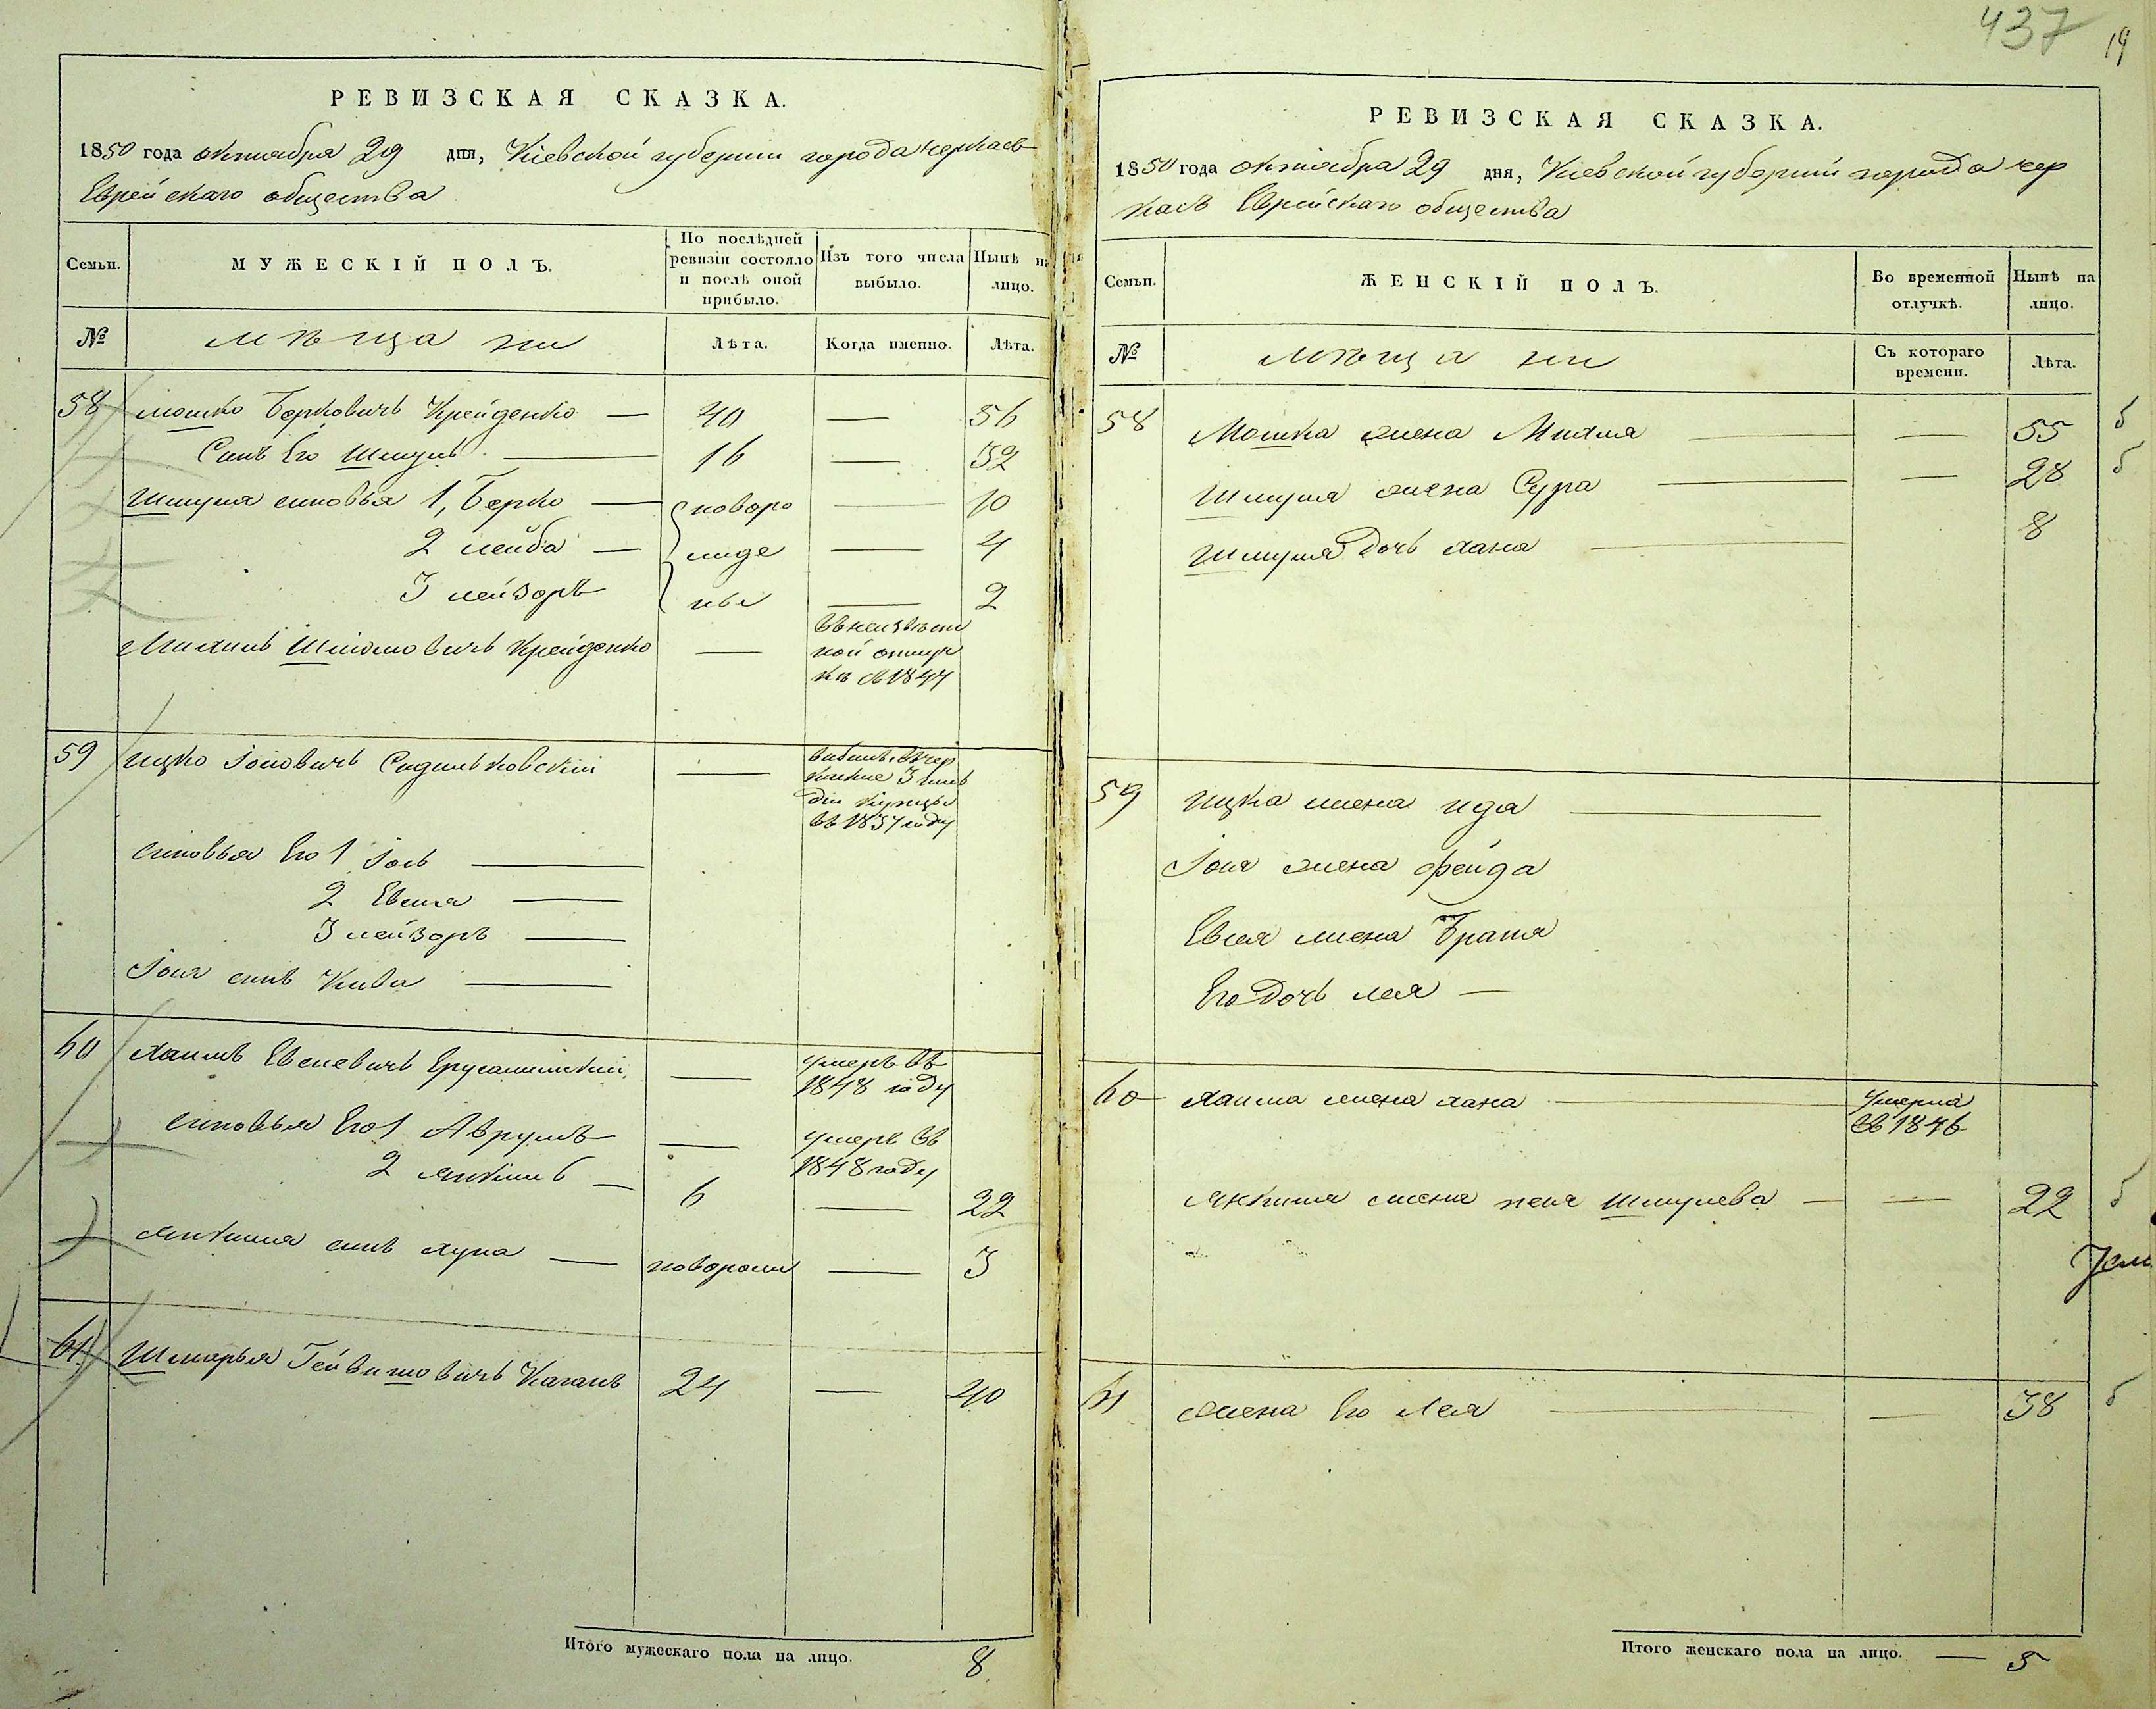 437
19
РЕВИЗСКАЯ СКАЗКА.
1850 года октября 29 дня, Кіевской губерніи города черкасъ
Еврейскаго общества
Семьи.
МУЖЕСКІЙ ПОЛЪ.
По послѣдней ревизіи состояло и послѣ оной прибыло.
Изъ того числа выбыло.
Нынѣ на лицо.
№
мѣщани
Лѣта.
Когда именно.
Лѣта.
58 мошко Берковичъ Крейденко — 40 — 56
Синъ Его Шмуль — 16 — 32
Шмуля синовья 1, Берко — новоро — 10
2 лейба — жде — 4
3 лейзоръ ны — 2
Михиль Шліомовичъ Крейденко —
въ неизвѣст
ной отлуч
кѣ съ 1847
59 ицко Іойовичъ —
3 гиль
діи купцы
въ 1837 году
синовья Его 1 Іось —
2 Евсей —
3 лейзоръ —
сынъ Кива —
60 Хаимъ Евсеевичъ Ерусалимскій — умеръ въ
1848 году
синовья Его 1 Аврумъ — умеръ въ
1848 году
2 Янкиль — 6 — 22
Янкиля синъ — новорожд — 3
61 Шмарья Каганъ 24 — 40
Итого мужескаго пола на лицо. 8
РЕВИЗСКАЯ СКАЗКА.
1850 года октября 29 дня, Кіевской губерніи города чер
касъ Еврейскаго общества
Семьи.
ЖЕНСКІЙ ПОЛЪ.
Во временной отлучкѣ.
Нынѣ на лицо.
№
мѣщани
Съ котораго времени.
Лѣта.
58 Мошка жена Михля — — 55 б
Шмуля жена Сура — — 28 б
Шмуля дочь хана — 8
59 ицка жена ида —
жена фейда
Евсея жена Браня
Его дочь лея —
60 Хаима жена хана — умерла
въ 1846
Янкиля жена Шмулева — — 22 б
61 жена Его Лея — — 38 б
Итого женскаго пола на лицо. — 5